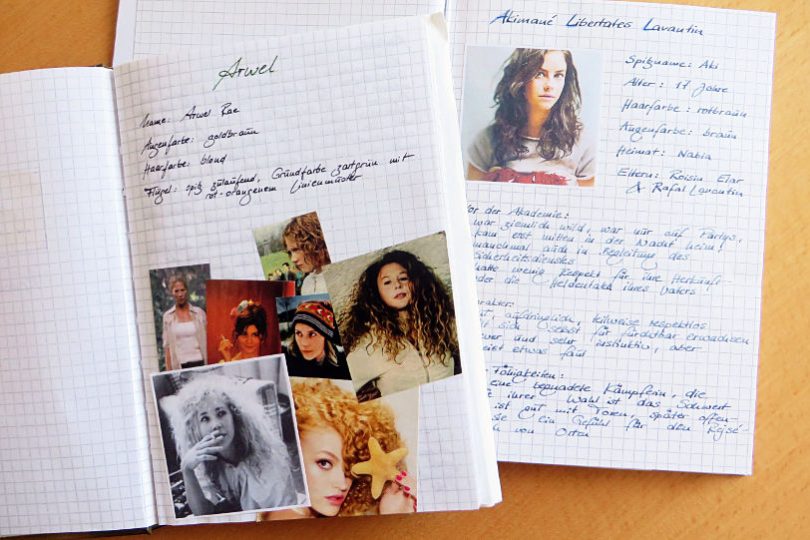 Arwel
Name: Arwel Rae
Augenfarbe: goldbraun
Haarfarbe: blond
Flügel: spitz zulaufend, Grundfarbe zartgrün mit
rot-orangenem Linienmuster
Akimané Libertates Lavantin
Spitzname: Aki
Alter: 17 Jahre
Haarfarbe: rotbraun
Augenfarbe: braun
Heimat: Nabia
Eltern: Roisin Elar
& Rafal Lavantin
Vor der Akademie:
war ziemlich wild, war nur auf Partys,
kam erst mitten in der Nacht heim!
manchmal auch in Begleitung des
Sicherheitsdienstes
hatte wenig Respekt für ihre Herkunft
oder die Heldentaten ihres Vaters
rakter:
aufdringlich, teilweise respektlos
sich selbst für furchtbar erwachsen
und sehr instinktiv, aber
etwas faul
Fähigkeiten:
eine begnadete Kämpferin, die
ihrer Wahl ist das Schwert
ist gut mit Toren, später offen-
sie ein Gefühl für den Rejsé-
von Orten